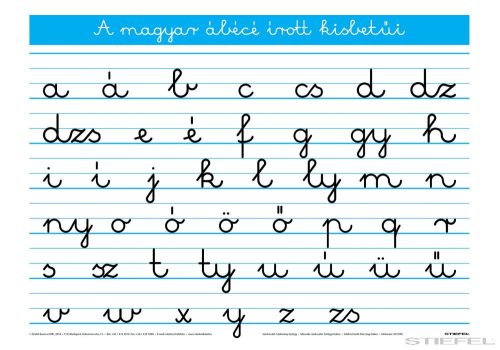 A magyar ábécé írott kisbetűi
a á b c cs d dz
dzs e é f g gy h
i í j k l ly m n
ny o ó ö ő p q r
s sz t ty u ú ü ű
v w x y z zs
STIEFEL
STIEFEL